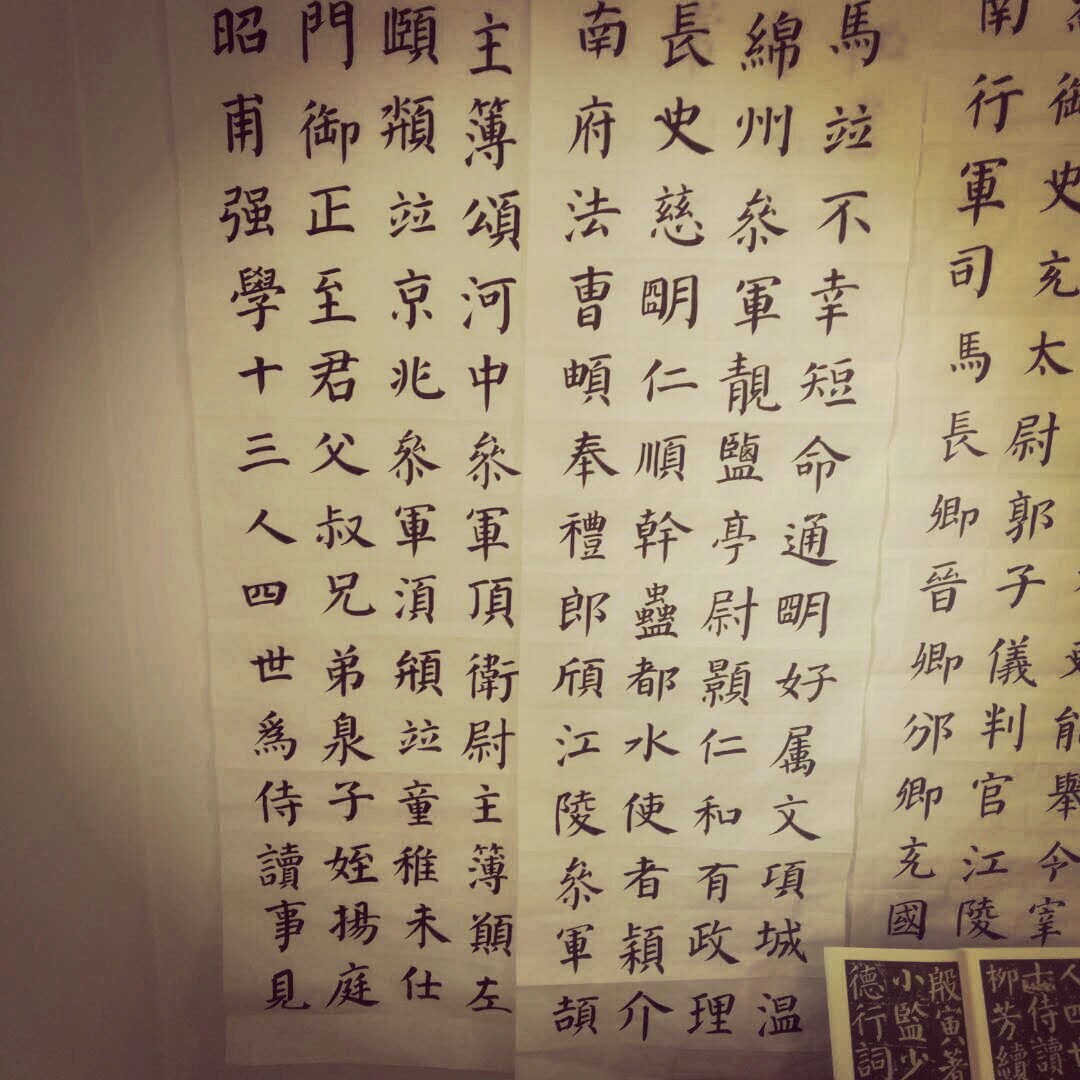 能舉今宰
御史充太尉郭子儀判官江陵
南行軍司馬長卿晉卿邠卿充國
馬竝不幸短命通明好属文項城温
綿州叅軍靚鹽亭尉顥仁和有政理
長史慈明仁順幹蠱都水使者穎介
南府法曹頔奉禮郎頎江陵叅軍頡
主簿頌河中叅軍頂衛尉主簿願左
頤竝京兆叅軍須頩竝童稚未仕
門御正至君父叔兄弟泉子姪揚庭
昭甫强學十三人四世爲侍讀事見
人四世
侍讀
柳芳續
殷寅著
小監少
德行詞